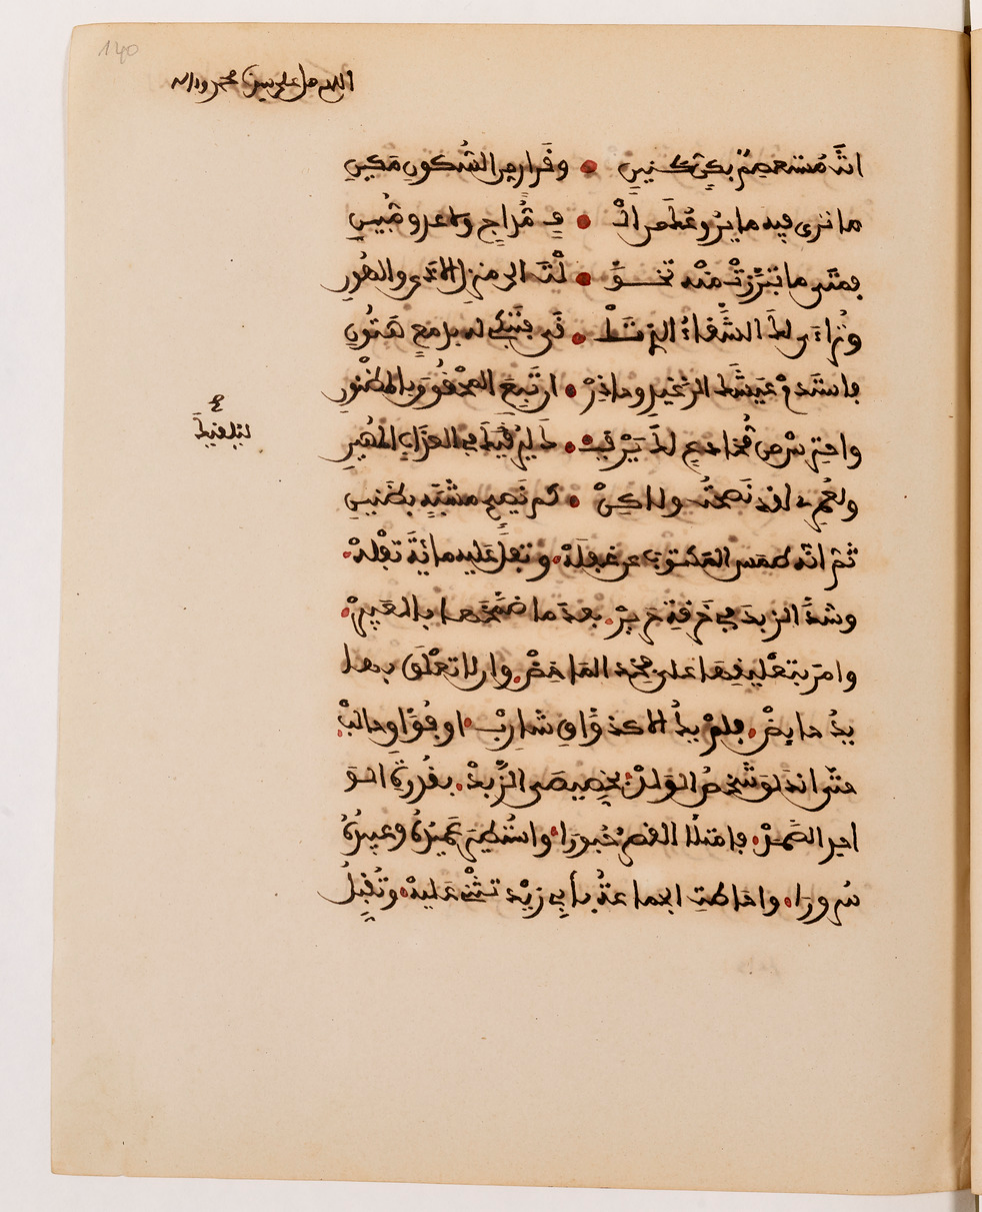 140
اللهم صل على سيدنا محمد وءاله
انت مُستعصِمٌ بكِنٍّ كنينِ • وقَرارٍ من السُّكون مَكينِ
ما ترى فيه ما يرُوعُك من الْـ • ـفٍ مُداجٍ ولا عدو مُبينِ
فمتى ما تبرَّزتْ منه تحوَّ • لْتَ الى منزل الاذى والهُونِ
وتُراءَى لك الشَّقاءُ الذي تَلْـ • ـقَى فتبكي له بدمعٍ هَتُونِ
فاستدمْ عيشَك الرغيد وحاذِرْ • ان تَبيعَ المحقُوقَ بالمظنُونِ
واحترسْ من مُخادعٍ لك يَرْقيـ • ـك ليُلقيكَ في العذاب المُهينِ
لِيُلْقِيَكَ
ولعُمري لقد نَصحتُ ولاكِنْ • كم نَصيحٍ مشبَّهٍ بظَنينِ
ثم انه طمس المكتوب على غفلة • وتفل عليه مائة تفلة •
وشدَّ الزبدَ في خرقةِ حرير • بعدَ ما ضمَّخها بالعبير •
وامرَ بتعليقها على فخذ الماخض • وان لا تعْلَق بها
يدُ حايض • فلم يكُ الا كذَواقِ شارب • او فُوَاقِ حالب •
حتى اندلق شخصُ الولد • لخصيصى الزبد • بقُدرة الواـ
حد الصمد • فامتلأ القصر حُبورا • واستُطير عميدُهُ وعبيدُهُ
سُرورا • واحاطتِ الجماعةُ بأبي زيد تثني عليه • وتُقبِّلُ